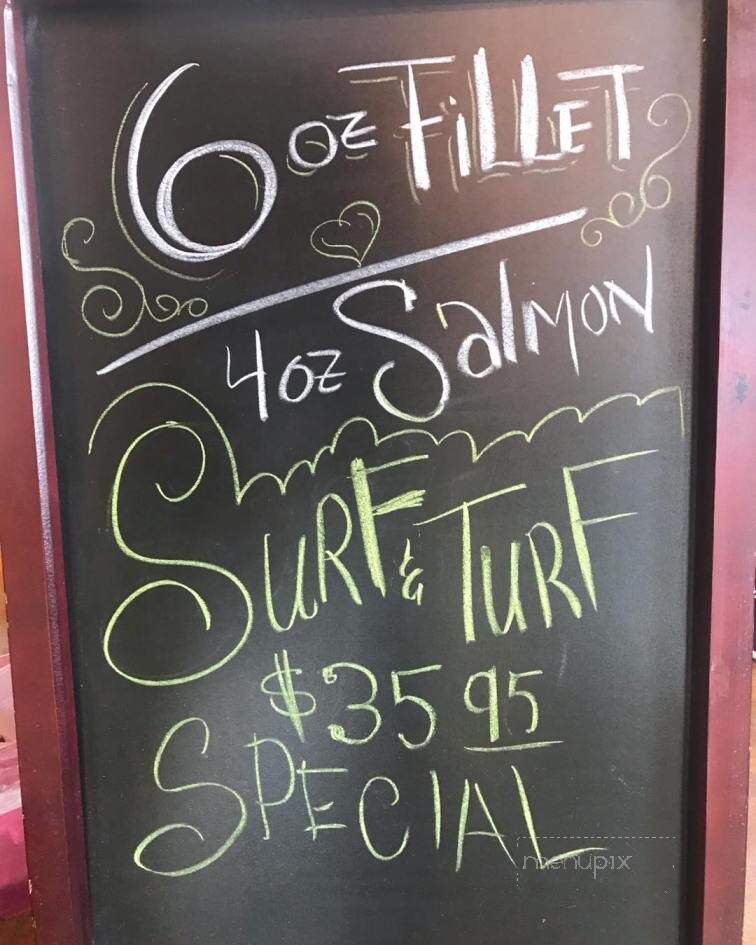 6oz FiLLET
4oz Salmon
SURF & TURF
$35 95
SPECIAL
menupix